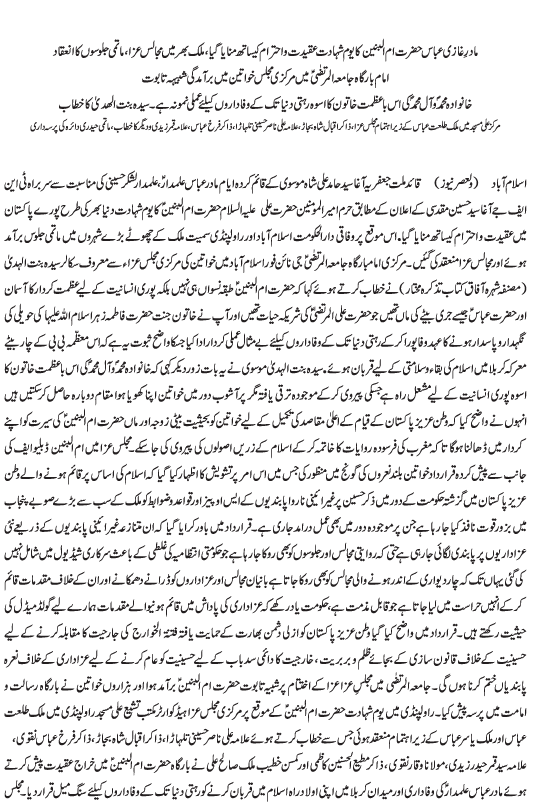 مادرِ غازی عباس حضرت ام البنین کا یوم شہادت عقیدت و احترام کیساتھ منایا گیا، ملک بھر میں مجالس عزا، ماتمی جلوسوں کا انعقاد
امام بارگاہ جامعہ المرتضیٰ میں مرکزی مجلس خواتین میں برآمدگی شبیہہ تابوت
خانوادہ محمدؐ و آل محمدؐ کی اس باعظمت خاتون کا اسوہ رہتی دنیا تک کے وفاداروں کیلئے عملی نمونہ ہے۔ سیدہ بنت الھدیٰ کا خطاب
مرکز علی مسجد میں ملک طلعت عباس کے زیر اہتمام مجلس عزا، ذاکر اقبال شاہ بجاڑ، علامہ علی ناصر حسینی تلہاڑا، ذاکر فرخ عباس، علامہ قمر زیدی و دیگر کا خطاب، ماتمی حیدری دائرہ کی پرسہ داری
اسلام آباد (ولعصر نیوز) قائد ملت جعفریہ آغا سید حامد علی شاہ موسوی کے قائم کردہ ایام مادر عباس علمدارؑ، علمدار لشکر حسینی کی مناسبت سے سربراہ ٹی این
ایف جے آغا سید حسین مقدسی کے اعلان کے مطابق حرم امیر المومنین حضرت علی علیہ السلام حضرت ام البنینؑ کا یوم شہادت دنیا بھر کی طرح پورے پاکستان
میں عقیدت و احترام کیساتھ منایا گیا۔ اس موقع پر وفاقی دار الحکومت اسلام آباد اور راولپنڈی سمیت ملک کے چھوٹے بڑے شہروں میں ماتمی جلوس برآمد
ہوئے اور مجالس عزا منعقد کی گئیں۔ مرکزی امامبارگاہ جامعہ المرتضیٰ جی نائن فور اسلام آباد میں خواتین کی مرکزی مجلس عزاء سے معروف سکالر سیدہ بنت الہدیٰ
(مصنفہ شہرہ آفاق کتاب تذکرہ مختار) نے خطاب کرتے ہوئے کہا کہ حضرت ام البنینؑ طبقہ نسواں ہی نہیں بلکہ پوری انسانیت کے لیے عظمت کردار کا آسمان
اور حضرت عباسؑ جیسے جری بیٹے کی ماں تھیں جو حضرت علی المرتضیٰؑ کی شریکہ حیات تھیں اور آپ نے خاتون جنت حضرت فاطمہ زہرا سلام اللہ علیہا کی حویلی کی
نگہدار و پاسدار ہونے کا عہد وفا پورا کر کے رہتی دنیا تک کے وفاداروں کیلئے بے مثال عملی کردار ادا کیا جسکا واضح ثبوت یہ ہے کہ اس معظمہ بی بی کے چار بیٹے
معرکہ کربلا میں اسلام کی بقاء و سلامتی کے لیے قربان ہوئے۔ سیدہ بنت الہدیٰ موسوی نے یہ بات زور دیکر کہی کہ خانوادہ محمدؐ و آل محمدؐ کی اس باعظمت خاتون کا
اسوہ پوری انسانیت کے لیے مشعل راہ ہے جسکی پیروی کر کے موجودہ ترقی یافتہ مگر پر آشوب دور میں خواتین اپنا کھویا ہوا مقام دوبارہ حاصل کر سکتیں ہیں
انہوں نے واضح کیا کہ وطن عزیز پاکستان کے قیام کے اعلیٰ مقاصد کی تکمیل کے لیے خواتین کو بحیثیت بیٹی زوجہ اور ماں حضرت ام البنینؑ کی سیرت کو اپنے
کردار میں ڈھالنا ہوگا تاکہ مغرب کی فرسودہ روایات کا خاتمہ کر کے اسلام کے زریں اصولوں کی پیروی کی جا سکے۔ مجلس عزا میں ام البنین ڈبلیو ایف کی
جانب سے پیش کردہ قرارداد خواتین بلند نعروں کی گونج میں منظور کی جس میں اس امر پر تشویش کا اظہار کیا گیا کہ اسلام کی اساس پر قائم ہونے والے وطن
عزیز پاکستان میں گزشتہ حکومت کے دور میں ذکر حسین پر غیر آئینی ناروا پابندیوں کے ایس او پیز اور قواعد و ضوابط کو ملک کے سب سے بڑے صوبے پنجاب
میں بزور قوت نافذ کیا جا رہا ہے جن پر موجودہ دور میں بھی عمل درآمد جاری ہے۔ قرارداد میں باور کرایا گیا کہ ان متنازعہ غیر آئینی پابندیوں کے ذریعے نئی
عزاداریوں پر پابندی لگائی جا رہی ہے حتیٰ کہ روایتی مجالس اور جلوسوں کو بھی روکا جا رہا ہے جو حکومتی انتظامیہ کی غلطی کے باعث سرکاری شیڈیول میں شامل نہیں
کی گئی یہاں تک کہ چار دیواری کے اندر ہونے والی مجالس کو بھی روکا جاتا ہے بانیان مجالس اور عزاداروں کو ڈرانے دھمکانے اور ان کے خلاف مقدمات قائم
کر کے انہیں حراست میں لیا جاتا ہے جو قابل مذمت ہے، حکومت یاد رکھے کہ عزاداری کی پاداش میں قائم ہونیوالے مقدمات ہمارے لیے گولڈ میڈل کی
حیثیت رکھتے ہیں۔ قرارداد میں واضح کیا گیا وطن عزیز پاکستان کو ازلی دشمن بھارت کے حمایت یافتہ فتنۃ الخوارج کی جارحیت کا مقابلہ کرنے کے لیے
حسینیت کے خلاف قانون سازی کے بجائے ظلم و بربریت، خارجیت کا دائمی سدباب کے لیے حسینیت کو عام کرنے کے لیے عزاداری کے خلاف نعرہ
پابندیاں ختم کرنا ہوں گی۔ جامعہ المرتضیٰ میں مجلس عزا عزا کے اختتام پر شبیہ تابوت حضرت ام البنینؑ برآمد ہوا اور ہزاروں خواتین نے بارگاہ رسالت و
امامت میں پرسہ پیش کیا۔ راولپنڈی میں یوم شہادت حضرت ام البنینؑ کے موقع پر مرکزی مجلس عزا ہیڈ کوارٹر مکتب تشیع علی مسجد راولپنڈی میں ملک طلعت
عباس اور ملک یاسر عباس کے زیر اہتمام منعقد ہوئی جس سے خطاب کرتے ہوئے علامہ علی ناصر حسینی تلہاڑا، ذاکر اقبال شاہ بجاڑ، ذاکر فرخ عباس نقوی،
علامہ سید قمر حیدر زیدی، مولانا وقار نقوی، ذاکر مطیع الحسنین کاظمی اور کمسن خطیب ملک صالح علی نے بارگاہ حضرت ام البنینؑ میں خراج عقیدت پیش کرتے
ہوئے مادر عباس علمدارؑ کی وفاداری اور میدان کربلا میں اپنی اولاد راہ اسلام میں قربان کرنے کو رہتی دنیا تک کے وفاداروں کیلئے سنگ میل قرار دیا۔ مجلس